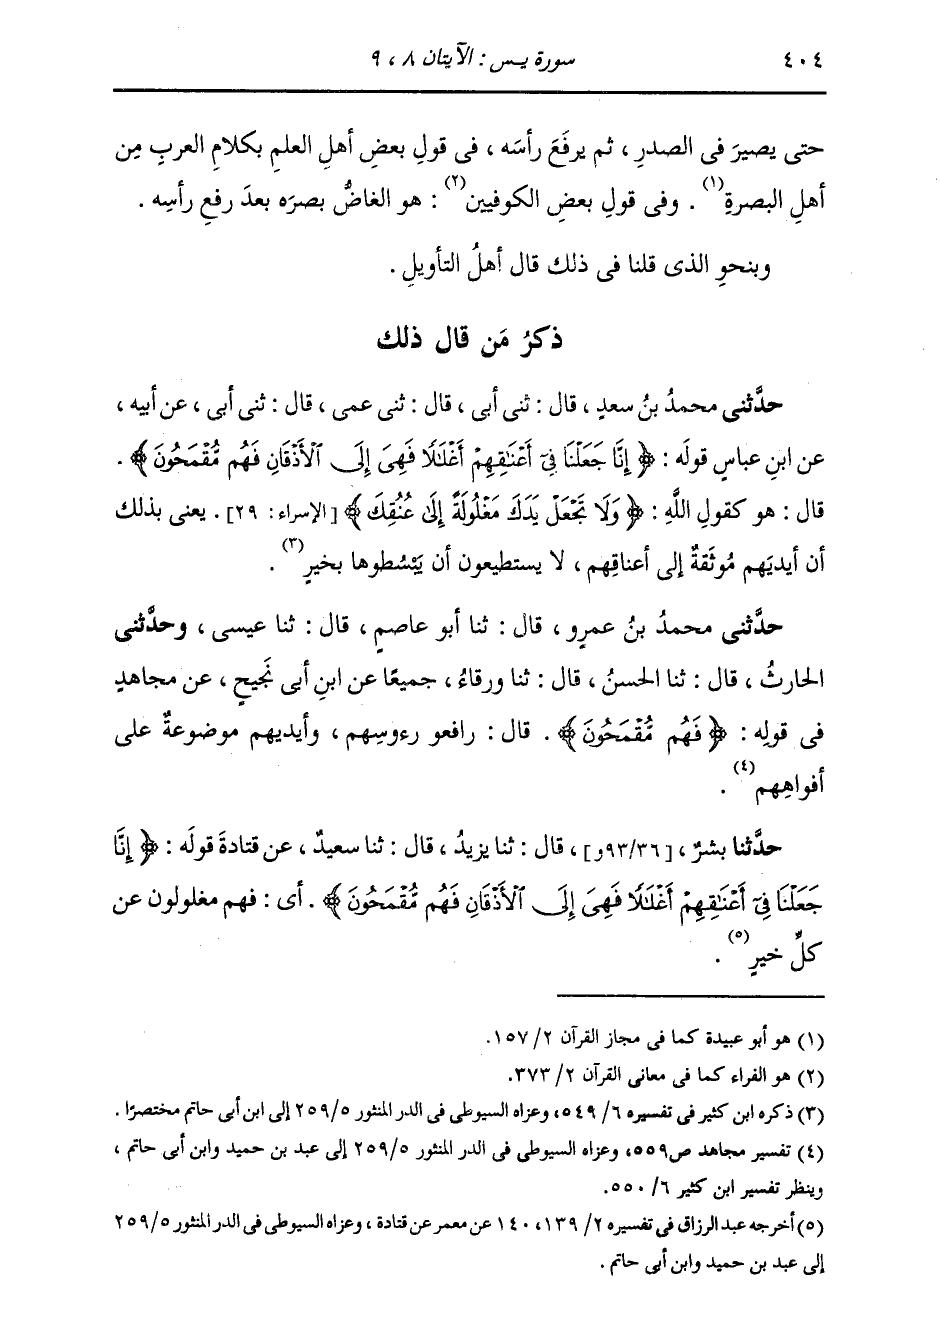 ٤٠٤ سورة يس : الآيتان ٨ ، ٩
حتى يصيرَ فى الصدرِ ، ثم يرفَعَ رأسَه ، فى قولِ بعضِ أهلِ العلمِ بكلامِ العربِ مِن
أهلِ البصرةِ(١) . وفى قولِ بعضِ الكوفيين(٢) : هو الغاضُّ بصرَه بعدَ رفعِ رأسِه .
وبنحوِ الذى قلنا فى ذلك قال أهلُ التأويلِ .
ذكرُ مَن قال ذلك
حدَّثنى محمدُ بنُ سعدٍ ، قال : ثنى أبى ، قال : ثنى عمى ، قال : ثنى أبى ، عن أبيه ،
عن ابنِ عباسٍ قولَه : ﴿ إِنَّا جَعَلْنَا فِىٓ أَعْنَٰقِهِمْ أَغْلَٰلًا فَهِىَ إِلَى ٱلْأَذْقَانِ فَهُم مُّقْمَحُونَ ﴾ .
قال : هو كقولِ اللَّهِ : ﴿ وَلَا تَجْعَلْ يَدَكَ مَغْلُولَةً إِلَىٰ عُنُقِكَ ﴾ [الإسراء: ٢٩] . يعنى بذلك
أن أيديَهم مُوثَقةٌ إلى أعناقِهم ، لا يستطيعون أن يَبْسُطوها بخيرٍ(٣) .
حدَّثنى محمدُ بنُ عمرٍو ، قال : ثنا أبو عاصمٍ ، قال : ثنا عيسى ، وحدَّثنى
الحارثُ ، قال : ثنا الحسنُ ، قال : ثنا ورقاءُ ، جميعًا عن ابنِ أبى نَجيحٍ ، عن مجاهدٍ
فى قولِه : ﴿ فَهُم مُّقْمَحُونَ ﴾ . قال : رافعو رءوسِهم ، وأيديهم موضوعةٌ على
أفواهِهم(٤) .
حدَّثنا بشرٌ ، [٩٣/٣٦و] ، قال : ثنا يزيدُ ، قال : ثنا سعيدٌ ، عن قتادةَ قولَه : ﴿ إِنَّا
جَعَلْنَا فِىٓ أَعْنَٰقِهِمْ أَغْلَٰلًا فَهِىَ إِلَى ٱلْأَذْقَانِ فَهُم مُّقْمَحُونَ ﴾ . أى : فهم مغلولون عن
كلِّ خيرٍ(٥) .
(١) هو أبو عبيدة كما فى مجاز القرآن ٢/ ١٥٧.
(٢) هو الفراء كما فى معانى القرآن ٢/ ٣٧٣.
(٣) ذكره ابن كثير فى تفسيره ٦/ ٥٤٩، وعزاه السيوطى فى الدر المنثور ٢٥٩/٥ إلى ابن أبى حاتم مختصرًا .
(٤) تفسير مجاهد ص٥٥٩، وعزاه السيوطى فى الدر المنثور ٢٥٩/٥ إلى عبد بن حميد وابن أبى حاتم ،
وينظر تفسير ابن كثير ٦/ ٥٥٠.
(٥) أخرجه عبد الرزاق فى تفسيره ٢/ ١٣٩، ١٤٠ عن معمر عن قتادة ، وعزاه السيوطى فى الدر المنثور ٢٥٩/٥
إلى عبد بن حميد وابن أبى حاتم .